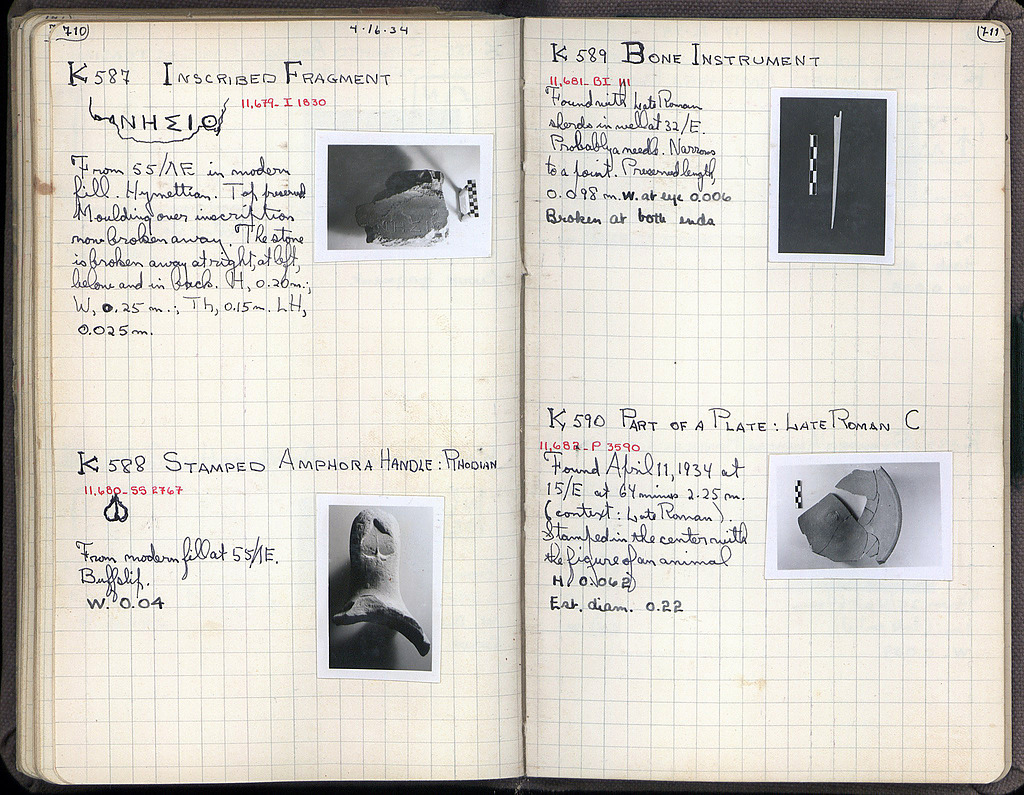 710
4·16·34
K 587 INSCRIBED FRAGMENT
11,679- I 1830
ΝΗΣΙΟ
From 55/ΛE in modern
fill. Hymettian. Top preserved.
Moulding over inscription
now broken away. The stone
is broken away at right, at left,
below and in back. H, 0.20m.;
W, 0.25 m.; Th, 0.15m. LH,
0.025m.
K 588 STAMPED AMPHORA HANDLE: RHODIAN
11,680- SS 2767
From modern fill at 55/ΛE.
Buff slip.
W. 0.04
711
K 589 BONE INSTRUMENT
11,681- BI 111
Found with Late Roman
sherds in well at 32/E.
Probably a needle. Narrows
to a point. Preserved length,
0.098 m. W. at eye 0.006
Broken at both ends
K 590 PART OF A PLATE: LATE ROMAN C
11,682- P 3590
Found April 11, 1934 at
15/E at 64 minus 2.25 m.
(context: Late Roman).
Stamped in the center with
the figure of an animal
H. 0.062)
Est. diam. 0.22